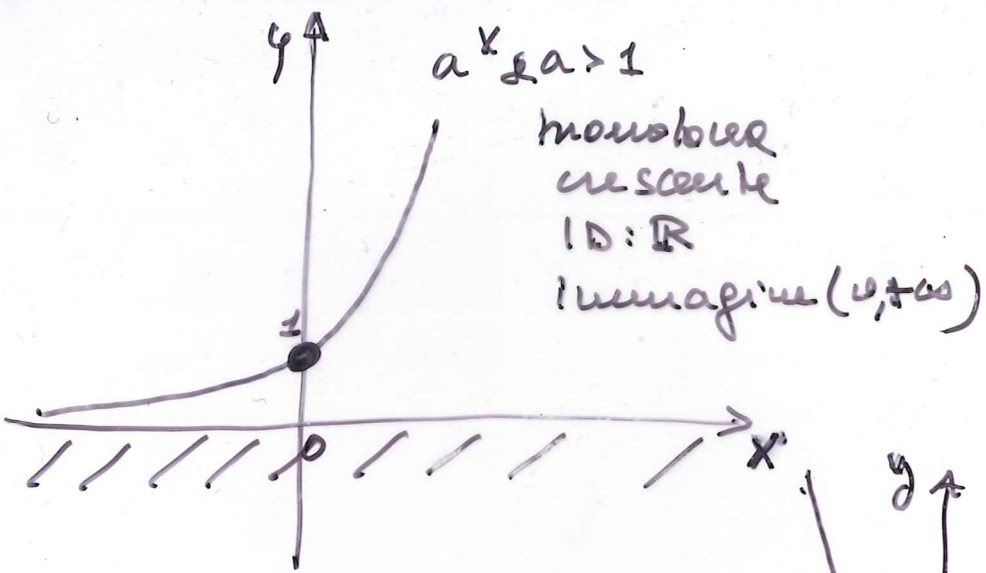 y
a^x se a>1
monotona
crescente
ID: ℝ
Immagine (0,+∞)
1
0
x
y